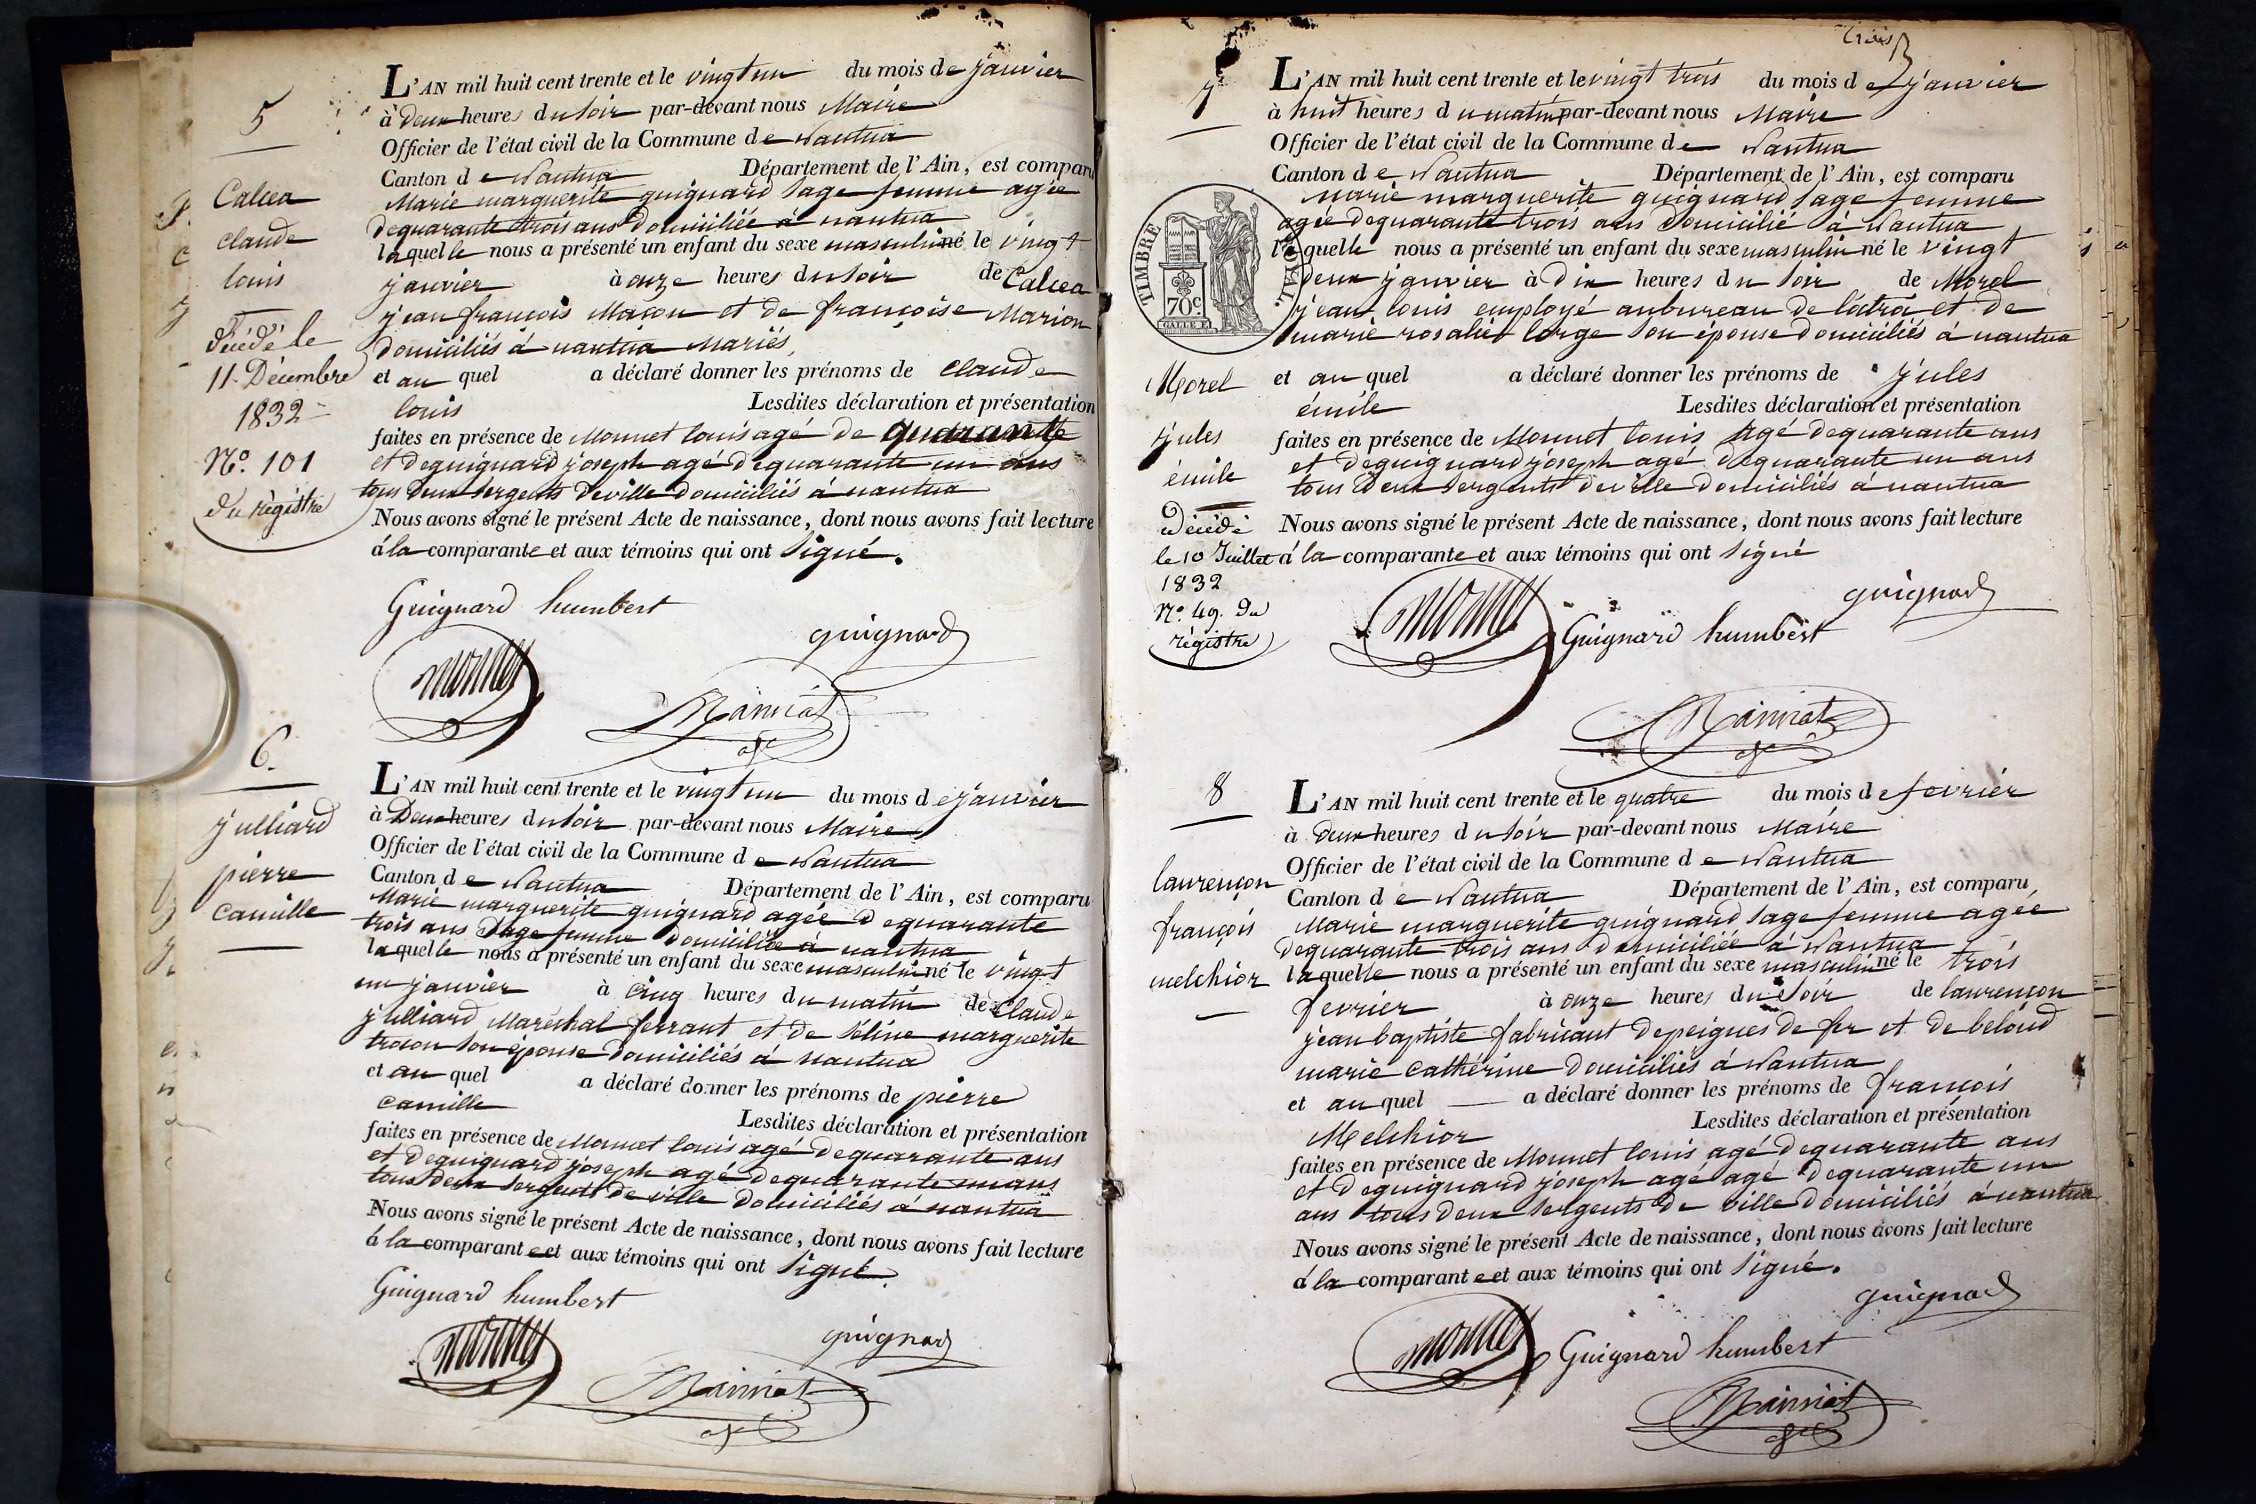 5
Calcea
claude
louis
Décédé le
11. Décembre
1832
N.o 101
du Régistre
L'AN mil huit cent trente et le vingt un du mois de janvier
à deux heures du soir par-devant nous Maire
Officier de l'état civil de la Commune de Nantua
Canton de Nantua Département de l'Ain, est comparu
Marie marguerite guignard sage femme agée
de quarante trois ans domiciliée à nantua
laquelle nous a présenté un enfant du sexe masculin né le vingt
janvier à onze heures du soir de Calcea
jean françois Maçon et de françoise Marion
domiciliés à nantua Mariés
et au quel a déclaré donner les prénoms de claude
louis Lesdites déclaration et présentation
faites en présence de Monnet louis agé de quarante
et de guignard joseph agé de quarante un ans
tous deux sergents de ville domiciliés à nantua
Nous avons signé le présent Acte de naissance, dont nous avons fait lecture
à la comparante et aux témoins qui ont signé.
Guignard humbert
guignard
monnet
6.
julliard
pierre
camille
L'AN mil huit cent trente et le vingt un du mois de janvier
à Deux heures du soir par-devant nous Maire
Officier de l'état civil de la Commune de Nantua
Canton de Nantua Département de l'Ain, est comparu
Marie marguerite guignard agée de quarante
trois ans Sage femme domiciliée à nantua
laquelle nous a présenté un enfant du sexe masculin né le vingt
un janvier à cinq heures du matin de Claude
julliard Maréchal ferrant et de séline marguerite
son épouse domiciliés à nantua
et au quel a déclaré donner les prénoms de pierre
camille Lesdites déclaration et présentation
faites en présence de Monnet louis agé de quarante ans
et de guignard joseph agé de quarante un ans
tous deux sergents de ville domiciliés à nantua
Nous avons signé le présent Acte de naissance, dont nous avons fait lecture
à la comparante et aux témoins qui ont signé
Guignard humbert
guignard
monnet
trois
7
TIMBRE ROYAL.
70c
Morel
jules
émile
Décédé
le 10 Juillet
1832
N.o 49. du
régistre
L'AN mil huit cent trente et le vingt trois du mois de janvier
à huit heures du matin par-devant nous Maire
Officier de l'état civil de la Commune de Nantua
Canton de Nantua Département de l'Ain, est comparu
Marie marguerite guignard sage femme
agée de quarante trois ans domicilié à Nantua
laquelle nous a présenté un enfant du sexe masculin né le vingt
deux janvier à dix heures du soir de Morel
jean louis employé au bureau de l'octroi et de
marie rosalie lorge son épouse domiciliés à nantua
et au quel a déclaré donner les prénoms de jules
émile Lesdites déclaration et présentation
faites en présence de Monnet louis agé de quarante ans
et de guignard joseph agé de quarante un ans
tous deux sergents de ville domiciliés à nantua
Nous avons signé le présent Acte de naissance, dont nous avons fait lecture
à la comparante et aux témoins qui ont signé
guignard
monnet
Guignard humbert
8
laurençon
françois
melchior
L'AN mil huit cent trente et le quatre du mois de fevrier
à deux heures du soir par-devant nous Maire
Officier de l'état civil de la Commune de Nantua
Canton de Nantua Département de l'Ain, est comparu
Marie marguerite guignard sage femme agée
de quarante trois ans domiciliée à Nantua
laquelle nous a présenté un enfant du sexe masculin né le trois
fevrier à onze heures du soir de laurençon
jean baptiste fabricant de peignes de fer et de beloud
marie cathérine domiciliés à Nantua
et au quel a déclaré donner les prénoms de françois
Melchior Lesdites déclaration et présentation
faites en présence de Monnet louis agé de quarante ans
et de guignard joseph agé agé de quarante un
ans tous deux sergents de ville domiciliés à nantua
Nous avons signé le présent Acte de naissance, dont nous avons fait lecture
à la comparante et aux témoins qui ont signé.
guignard
monnet
Guignard humbert